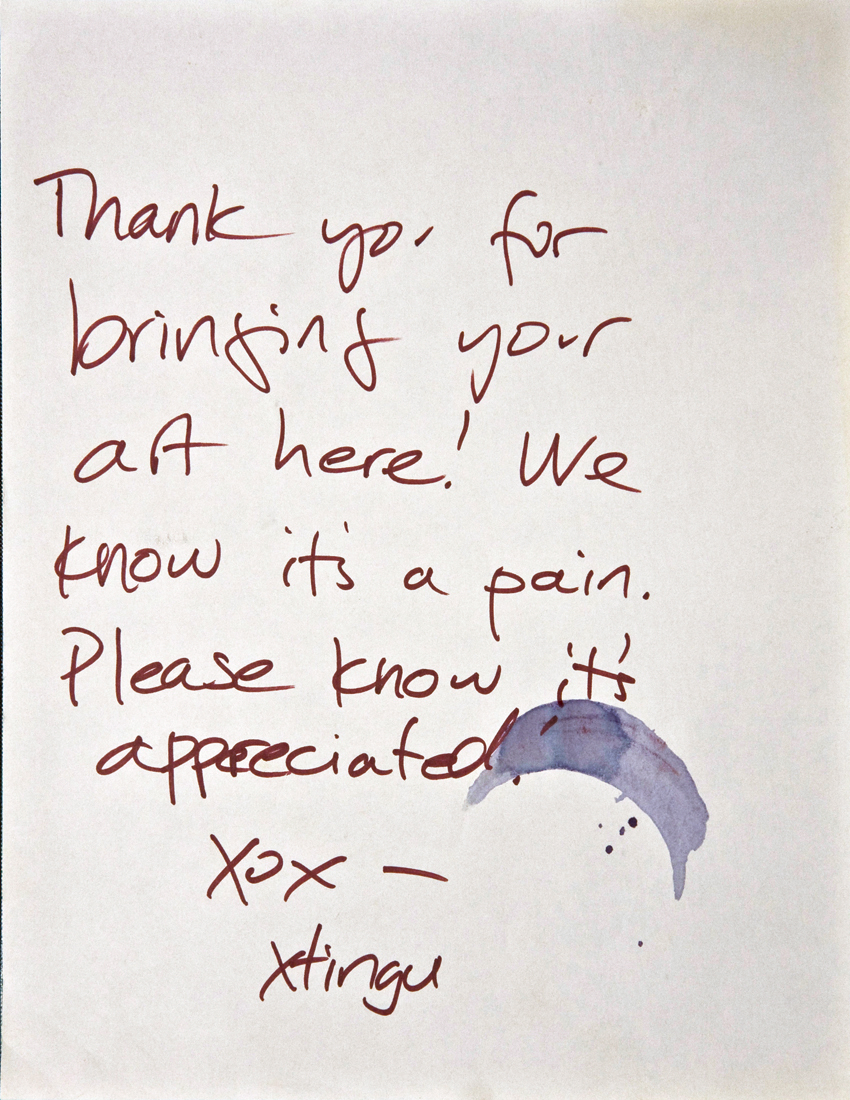 Thank you for
bringing your
art here! We
know it's a pain.
Please know it's
appreciated!
xox —
xtingu